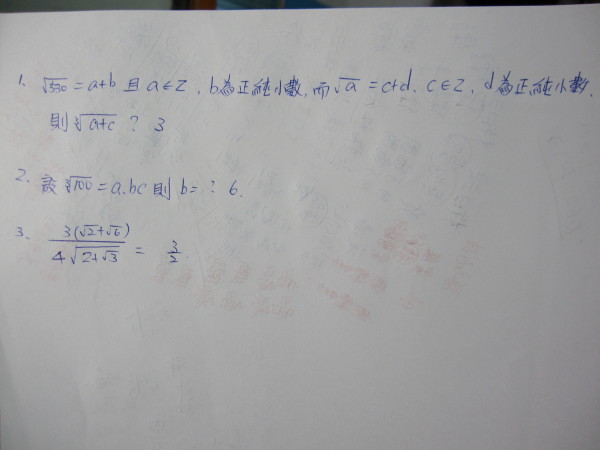 1. √530 = a+b 且 a∈Z, b為正純小數, 而√a = c+d. c∈Z, d為正純小數,
則∛(a+c) ? 3
2. 設∛100 = a.bc 則 b= ? 6.
3. 3(√2+√6) / 4√(2+√3) = 3/2